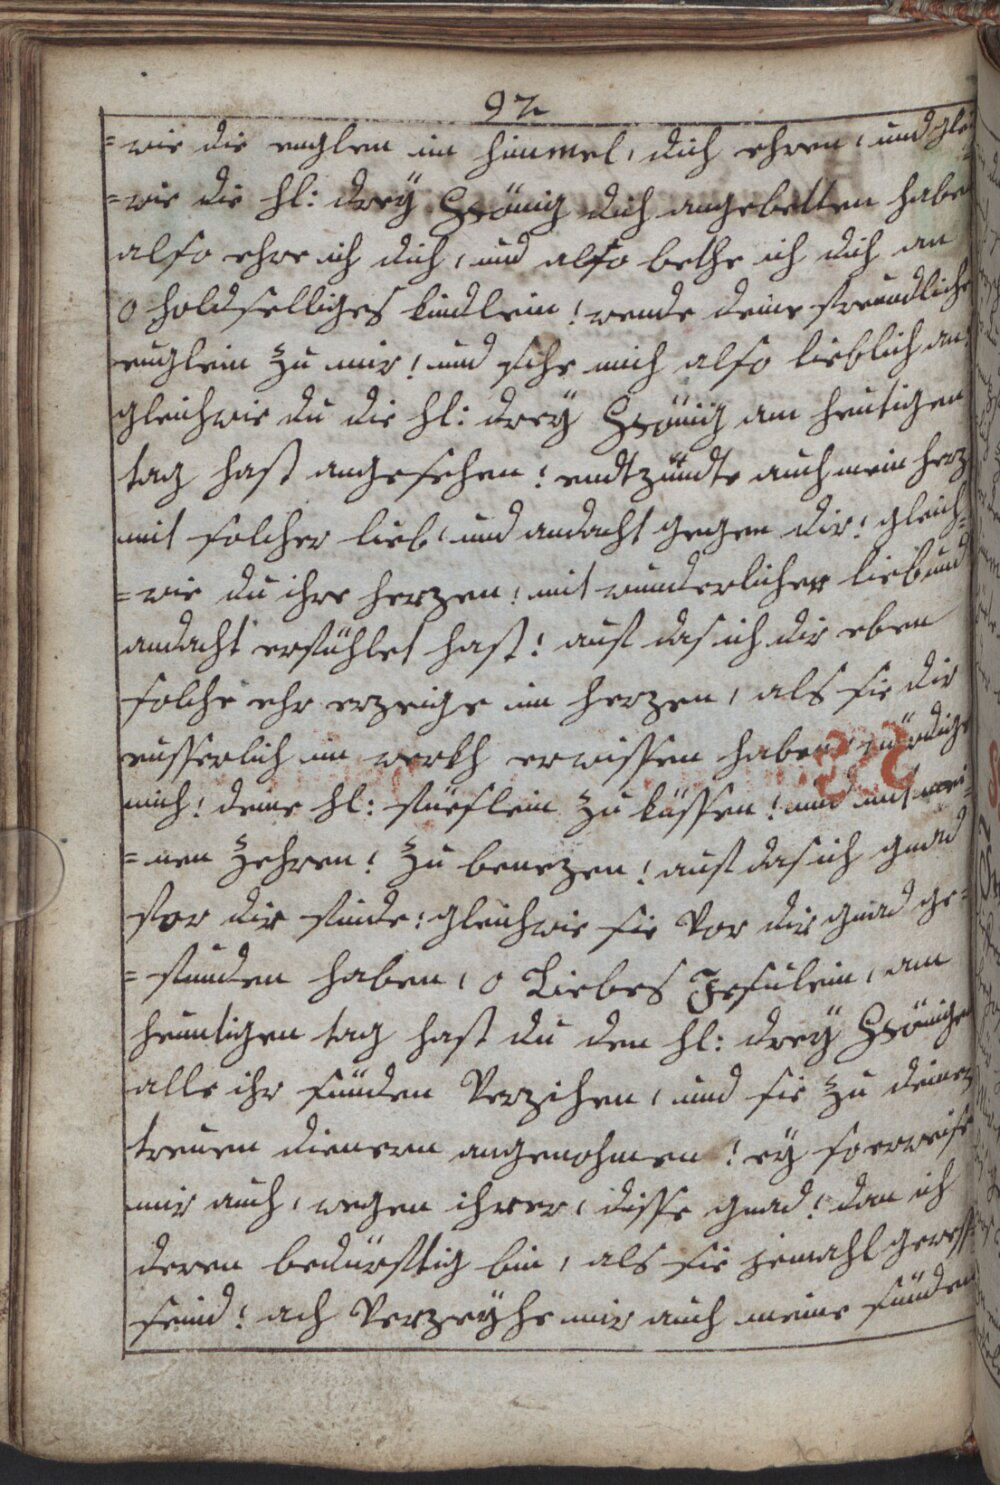 92
=wie die englen im himmel, dich ehren, und glei
=wie die hl: dreÿ König dich angebetten haben
also ehre ich dich, und also bethe ich dich an
o holdselliges kindlein! wende deine freundliche
euglein zu mir! und sihe mich also lieblich an
gleichwie du die hl: dreÿ König am heutigen
tag hast angesehen! endtzündte auch mein herz
mit solcher lieb, und andacht gegen dir! gleich=
=wie du ihre herzen! mit wunderlicher lieb und
andacht erfühlet hast! auf das ich dir eben
solche ehr erzeige im herzen, als sie dir
eusserlich im werkh erwissen haben, würdige
mich! deine hl: füeslein zu küssen! und mit mei=
=nen zehren! zu benezen! auf das ich gnad
for dir finde! gleichwie sie vor dir gnad ge=
=funden haben, o Liebes Jesulein, am
heuntigen tag hast du den hl: dreÿ Königen
alle ihr sünden Verzihen, und sie zu deinen
treuen dienern angenohmen! eÿ so erweise
mir auch, wegen ihrer, disse gnad! dan ich
deren bedürfftig bin, als sie jemahl gewess
seind! ach Verzeÿhe mir auch meine sünden